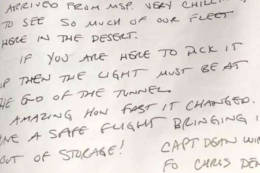 ARRIVED FROM MSP. VERY CHILL
TO SEE SO MUCH OF OUR FLEET
HERE IN THE DESERT.
IF YOU ARE HERE TO PICK IT
UP THEN THE LIGHT MUST BE AT
THE END OF THE TUNNEL.
AMAZING HOW FAST IT CHANGED.
A SAFE FLIGHT BRINGING
OUT OF STORAGE!
CAPT DEAN
FO CHRIS